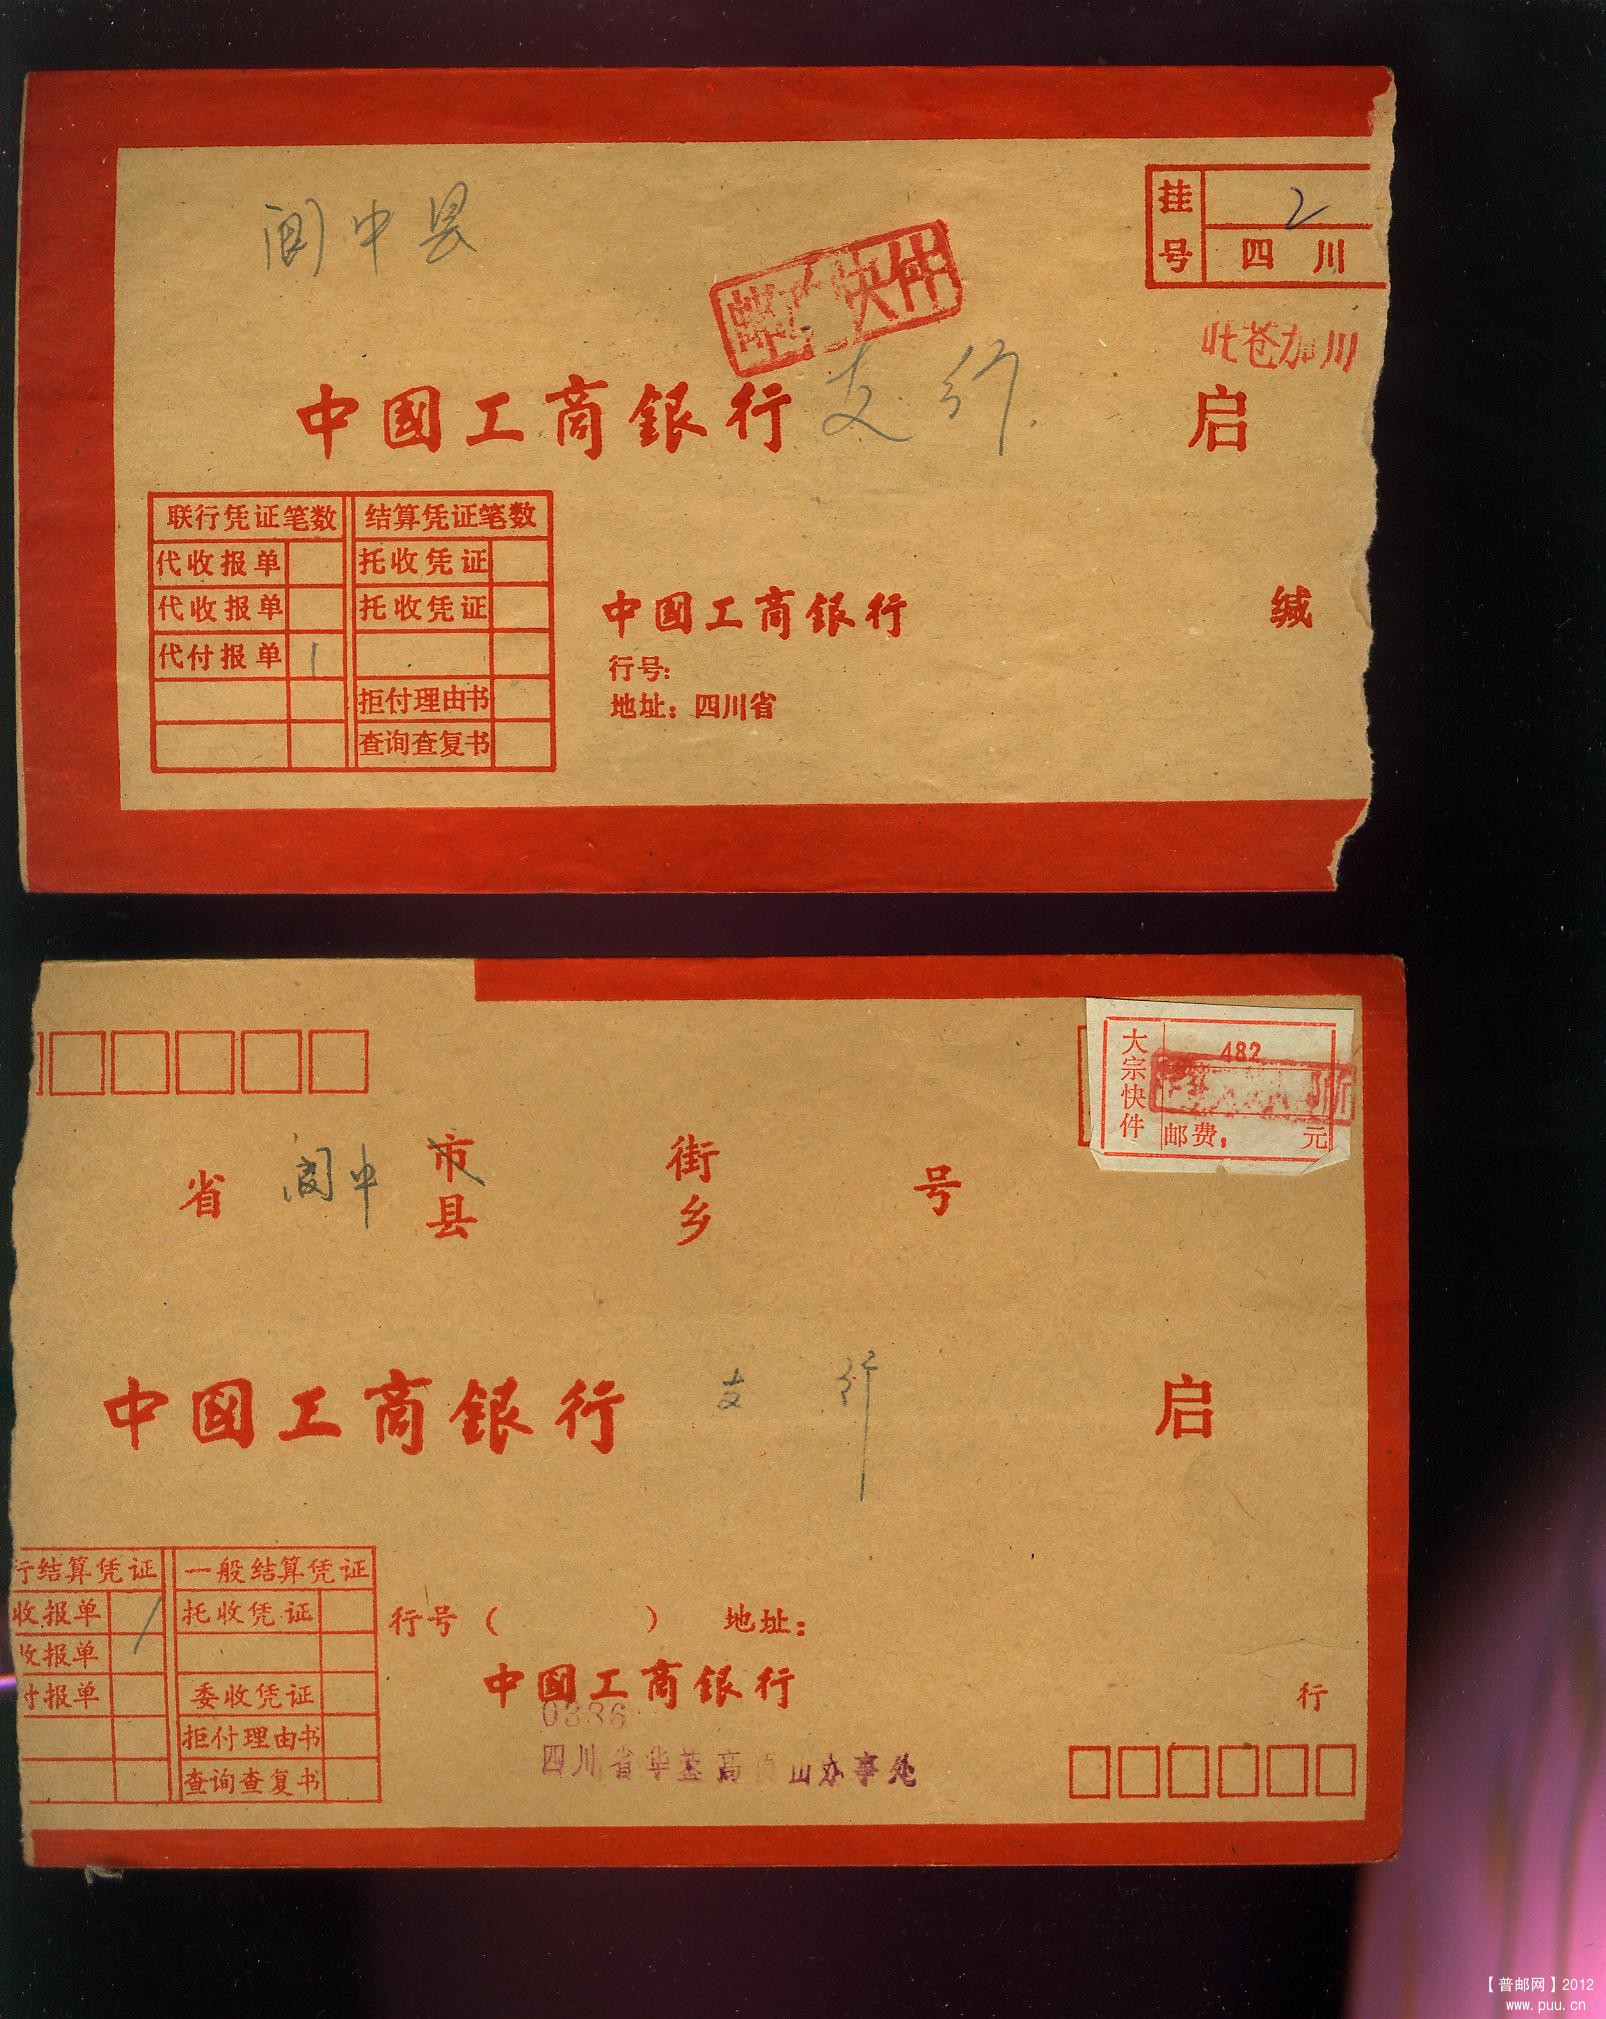 阆中县
挂号
2
四川
邮政快件
北苍加川
中國工商銀行支行 启
联行凭证笔数 结算凭证笔数
代收报单 托收凭证
代收报单 托收凭证
代付报单 1
拒付理由书
查询查复书
中國工商銀行 缄
行号:
地址: 四川省
大宗快件
482
邮费: 元
省 阆中 市县 街乡 号
中國工商銀行 支行 启
行结算凭证 一般结算凭证
收报单 1 托收凭证
收报单
付报单 委收凭证
拒付理由书
查询查复书
行号( ) 地址:
中國工商銀行 行
0336
四川省华蓥高顶山办事处
【普邮网】2012
www.puu.cn